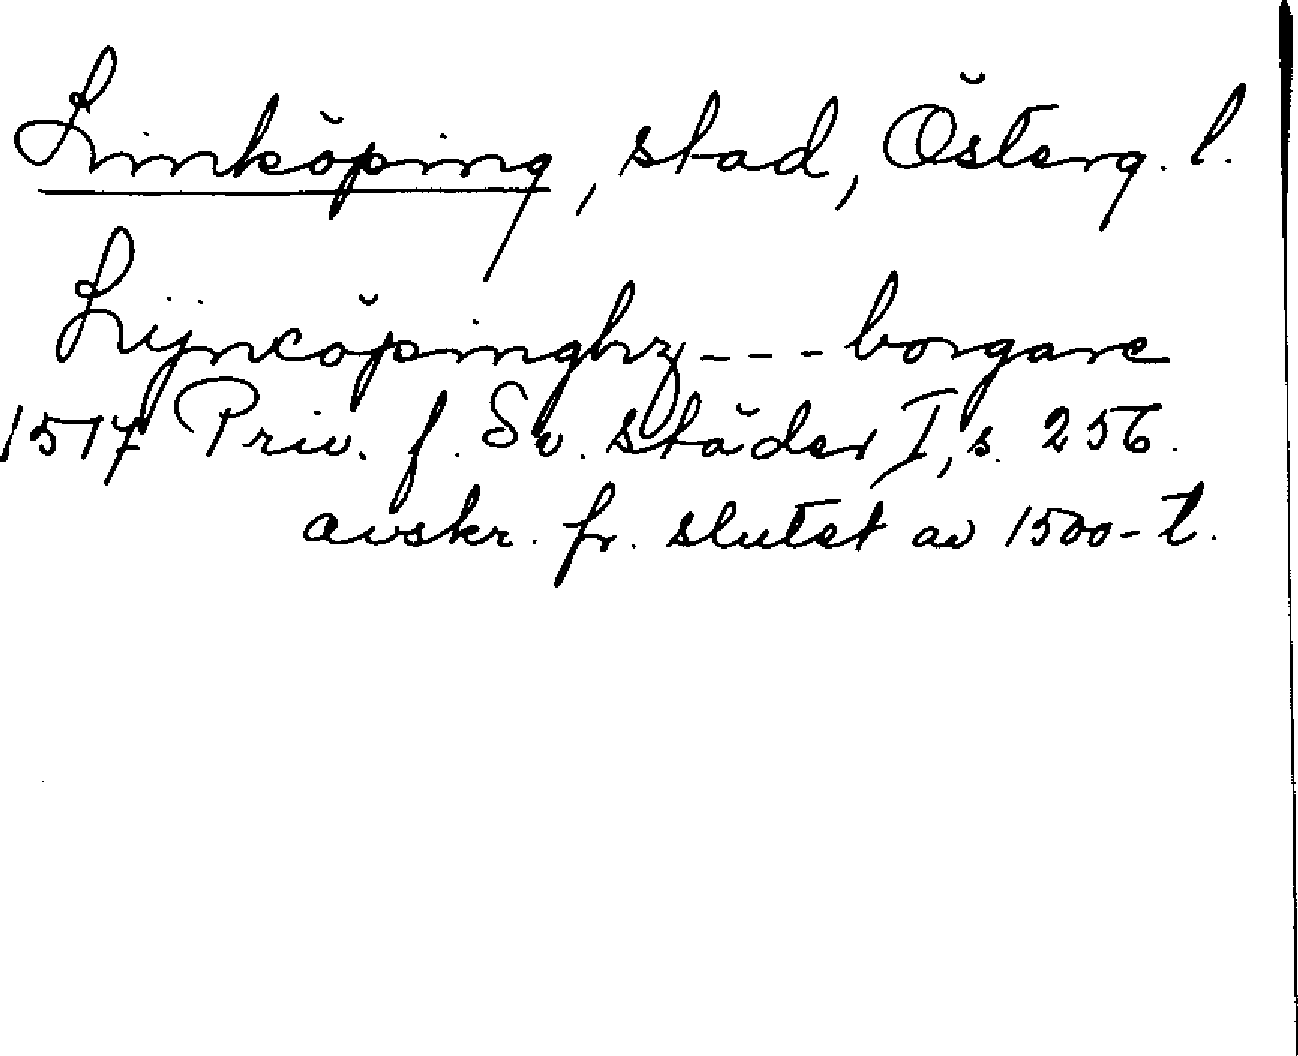 Linköping, stad, Österg. l.
Lijncöpinghz --- borgare
1517 Priv. f. Sv. städer I, s. 256.
avskr. fr. slutet av 1500-t.